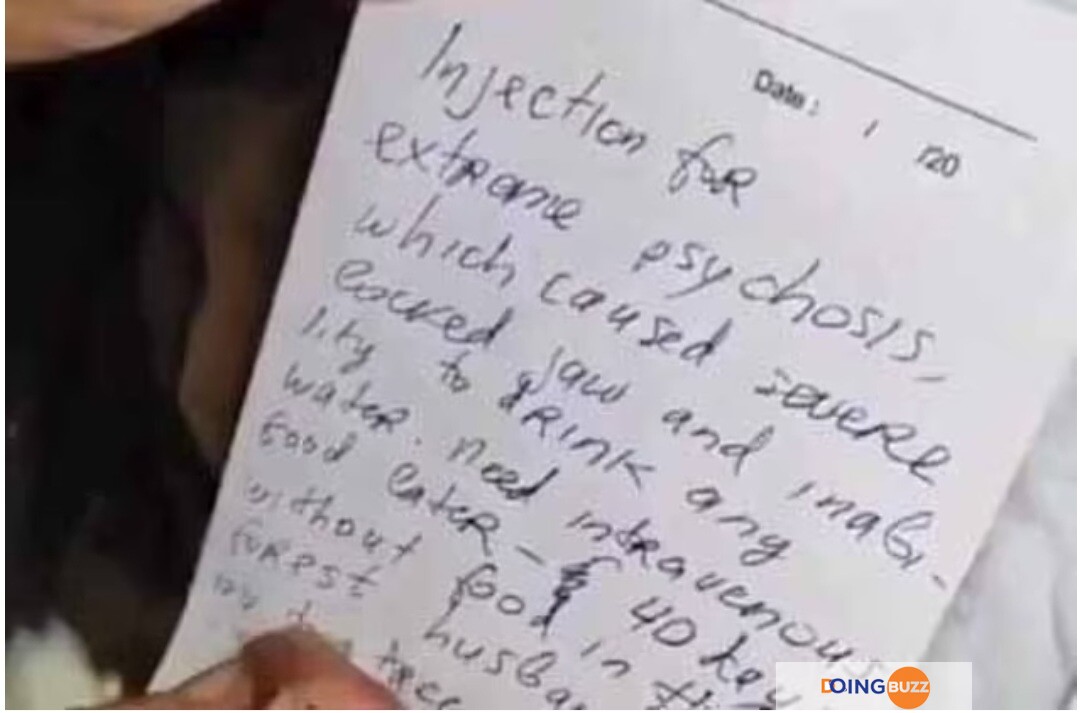 Date: / /20
Injection for
extreme psychosis,
which caused severe
locked jaw and inabi-
lity to drink any
water. need intravenous
food later - 40
without food in
forest
DOINGBUZZ